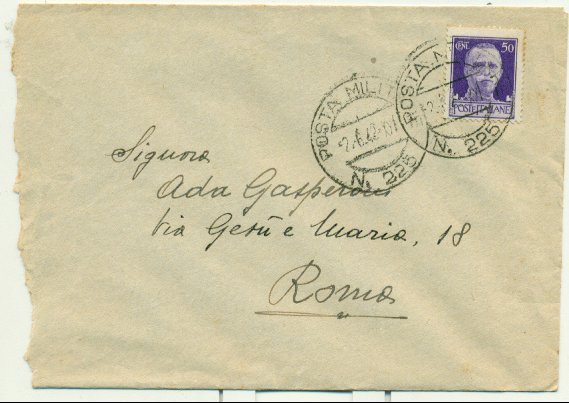 CENT 50
POSTE ITALIANE
POSTA MILIT
2.6.42.
N. 225
POSTA M
N. 225
Signora
Ada Gasperoni
Via Gesù e Maria, 18
Roma